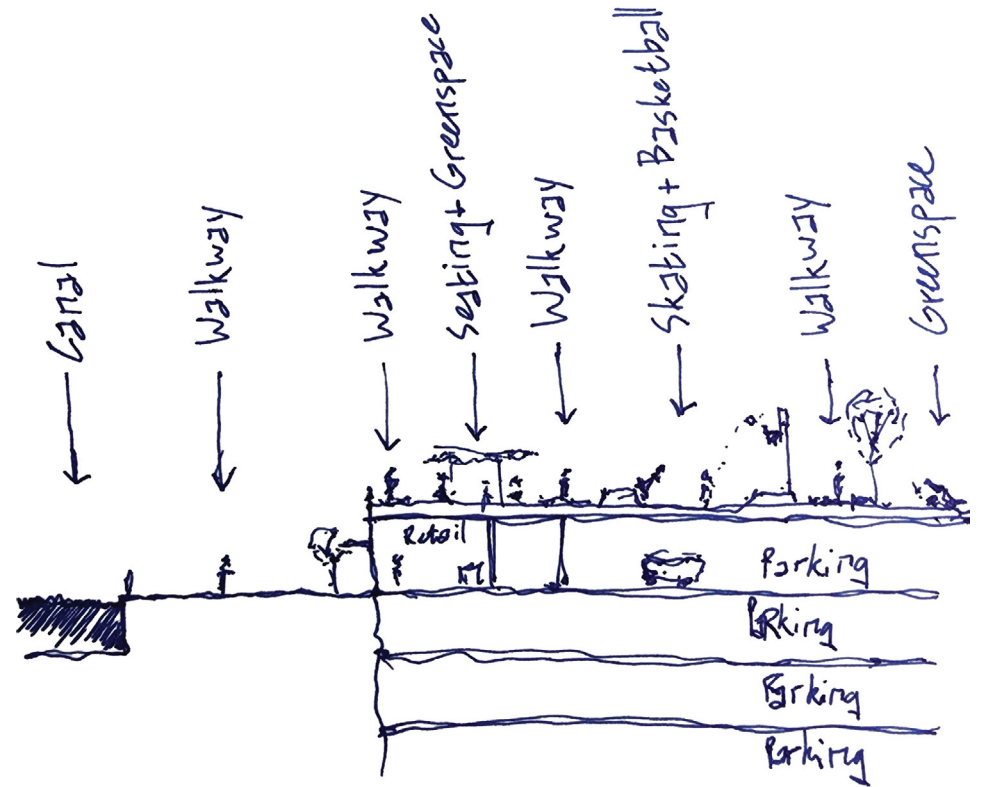 Canal
Walkway
Walkway
Seating + Greenspace
Walkway
Skating + Basketball
Walkway
Greenspace
Retail
Parking
PARking
Parking
Parking